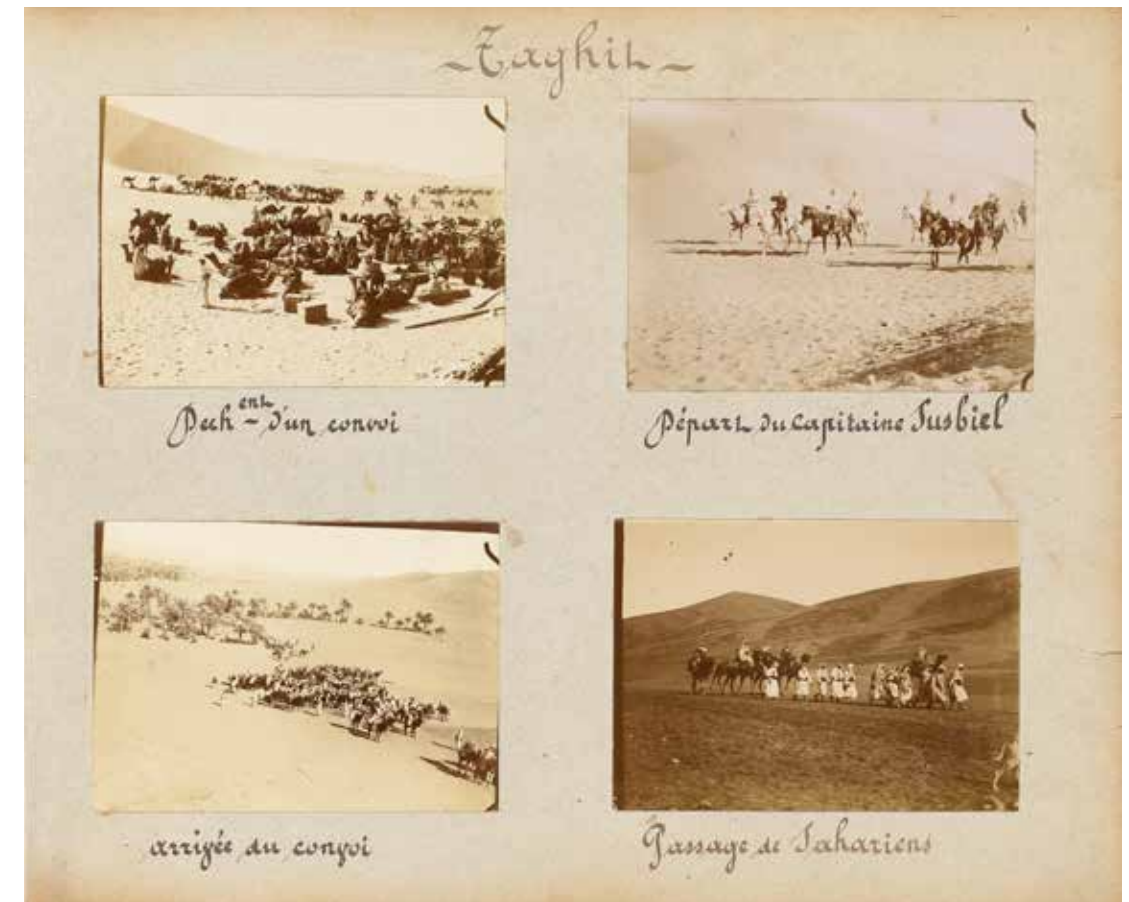 - Taghit -
Dech^ent d'un convoi
Départ du Capitaine Susbiel
arrivée du convoi
Passage de Sahariens